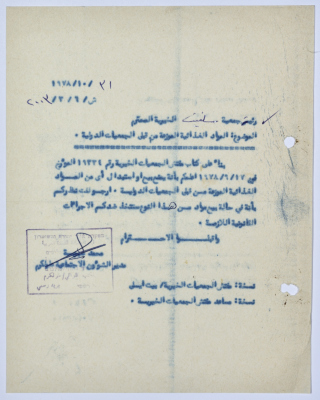 ٣١/١٠/١٩٧٨
ش/٦/٣/٢٠٠٣
رئيس جمعية سلفيت الخيرية المحترم
الموضوع: المواد الغذائية الموزعة من قبل الجمعيات الدولية .
بناء على كتاب ضابط الجمعيات الخيرية رقم ١١٣٢٤ المؤرخ
في ١٩٧٨/٩/١٢ اعلمكم بأنه يمنع بيع او استبدال أي من المواد
الغذائية الموزعة من قبل الجمعيات الدولية . ارجو لفت نظركم
بأنه في حالة بيع مواد من هذا النوع ستتخذ ضدكم الاجراءات
القانونية اللازمة .
واقبلوا الاحترام
مدير الشؤون الاجتماعية
نسخة : ضابط الجمعيات الخيرية/ بيت ايل
نسخة : مساعد ضابط الجمعيات الخيرية .